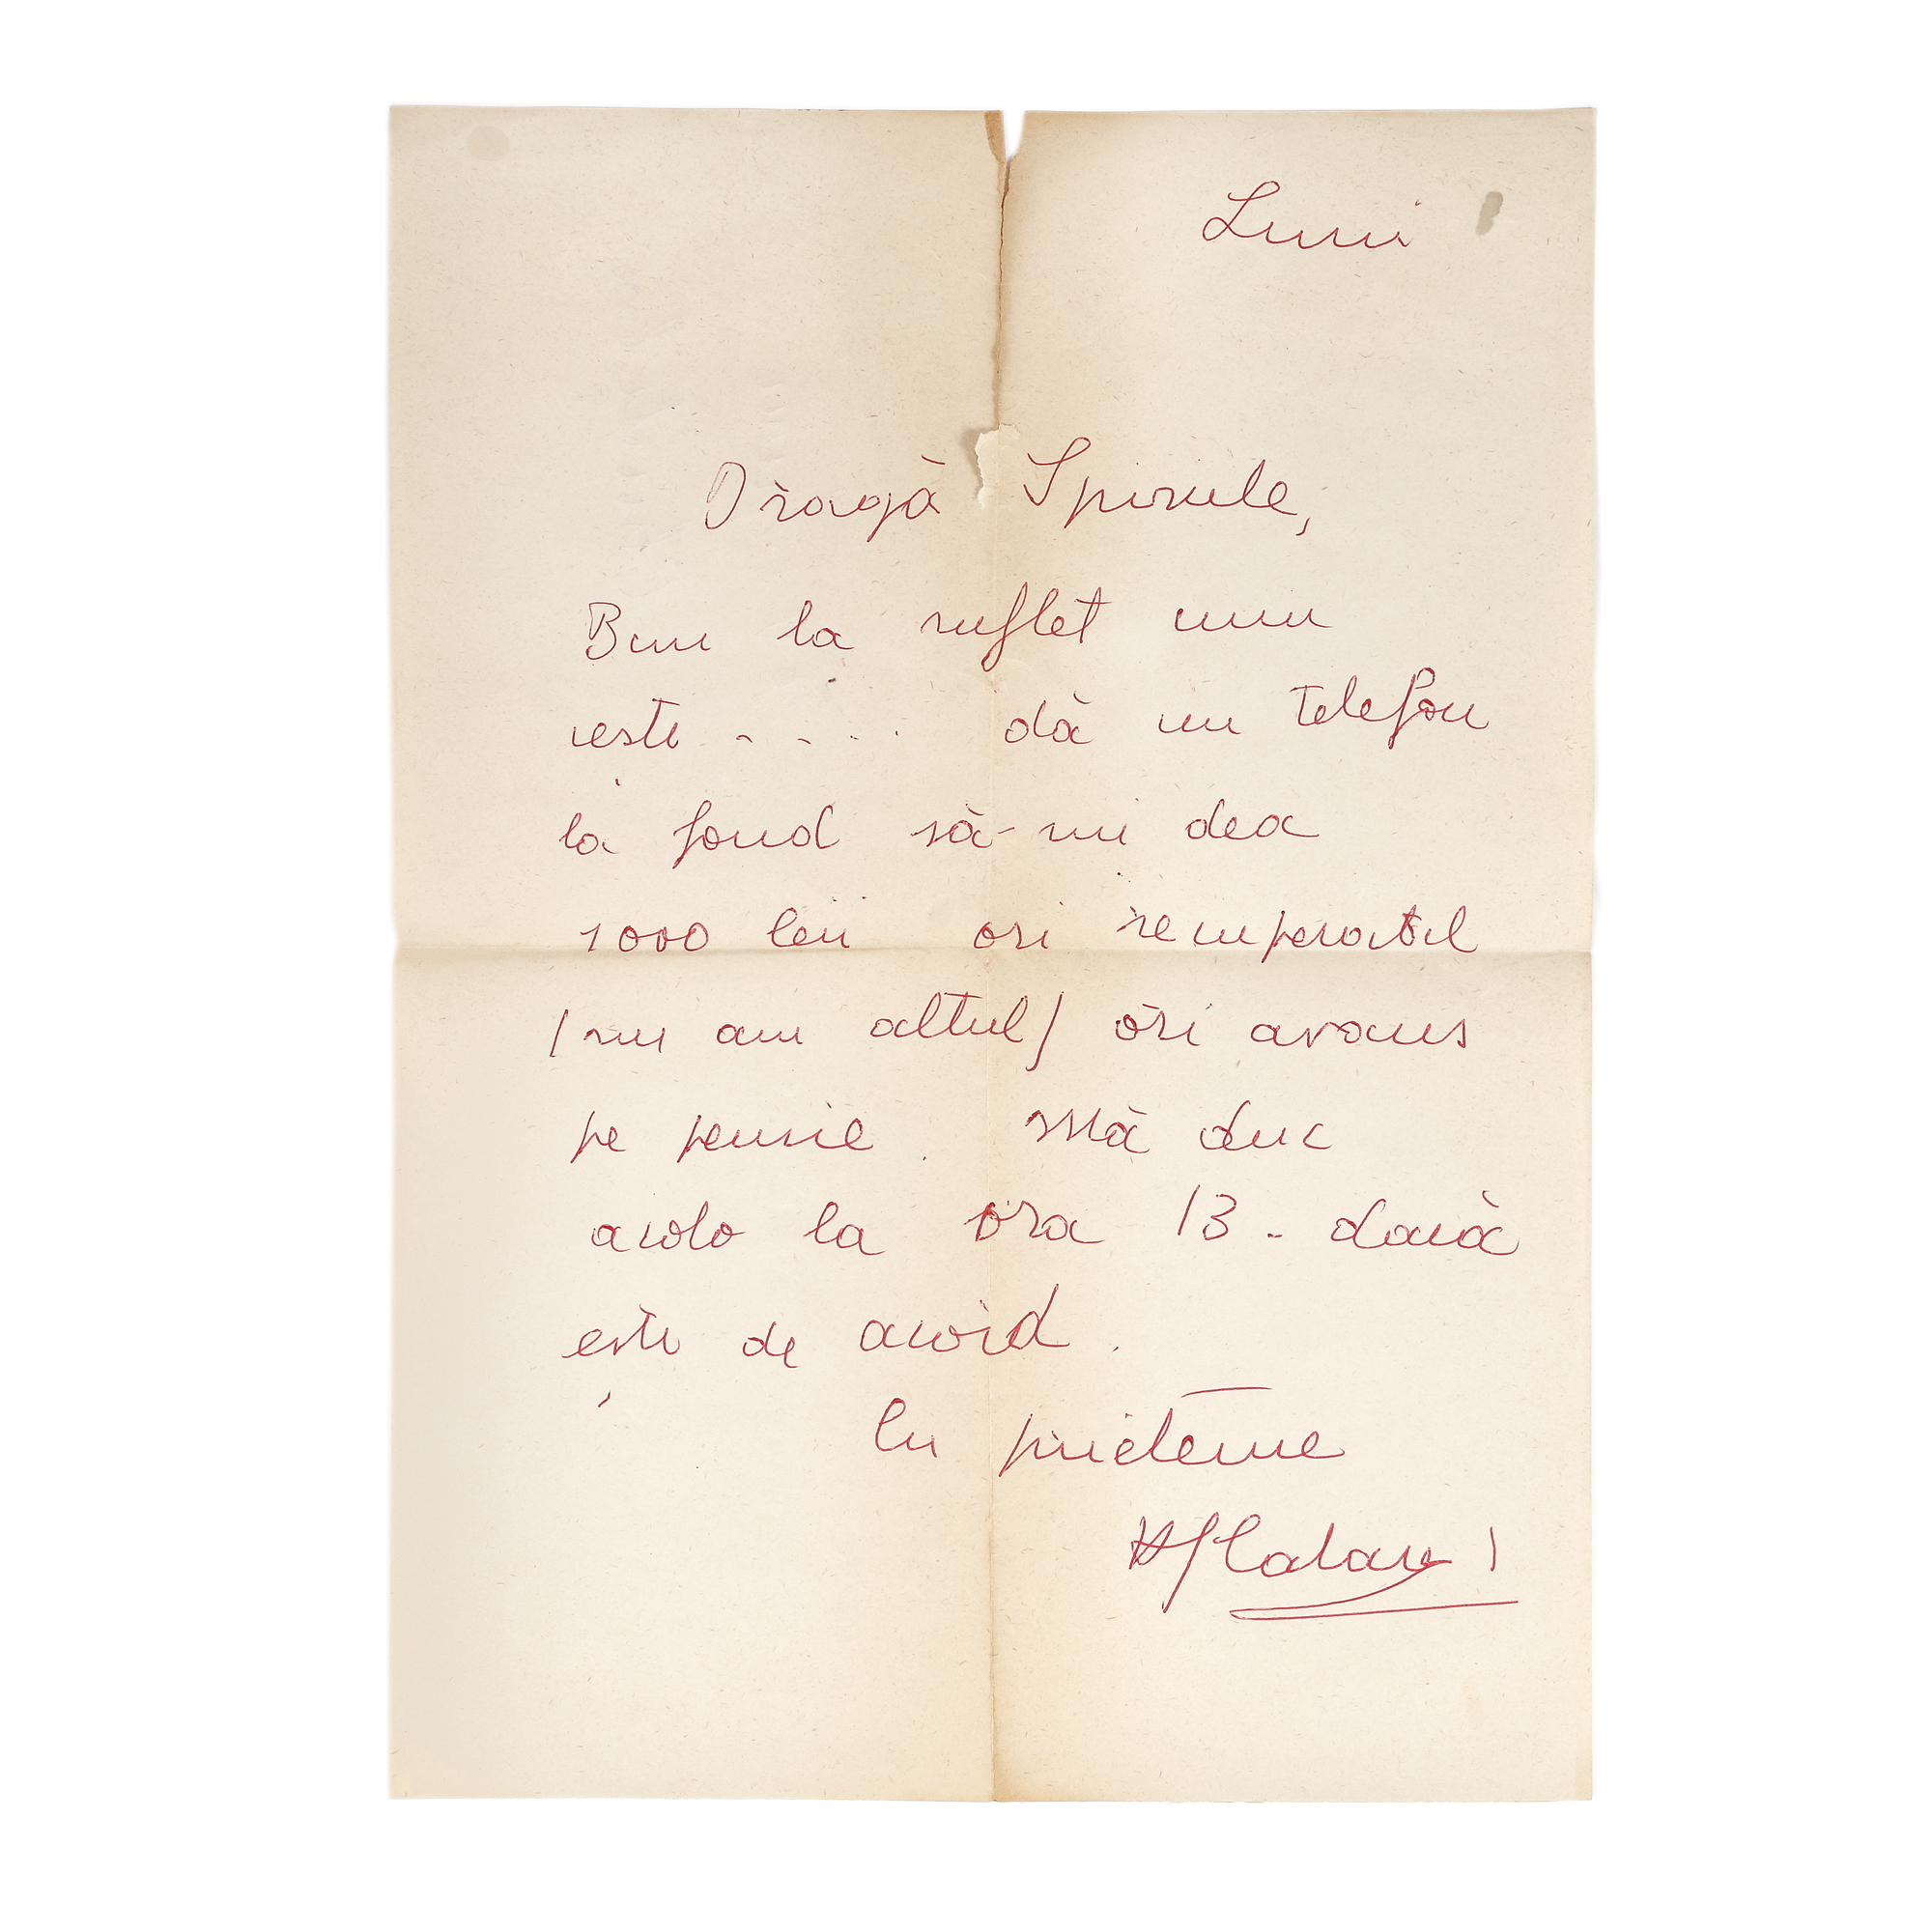 Luni
Dragă Spirule,
Bun la suflet cum
ești .... dă un telefon
la fond să-mi dea
1000 lei ori nerambursabil
/nu am altul/ ori avans
pe pensie. Mă duc
acolo la ora 13 - dacă
ești de acord.
Cu prietenie